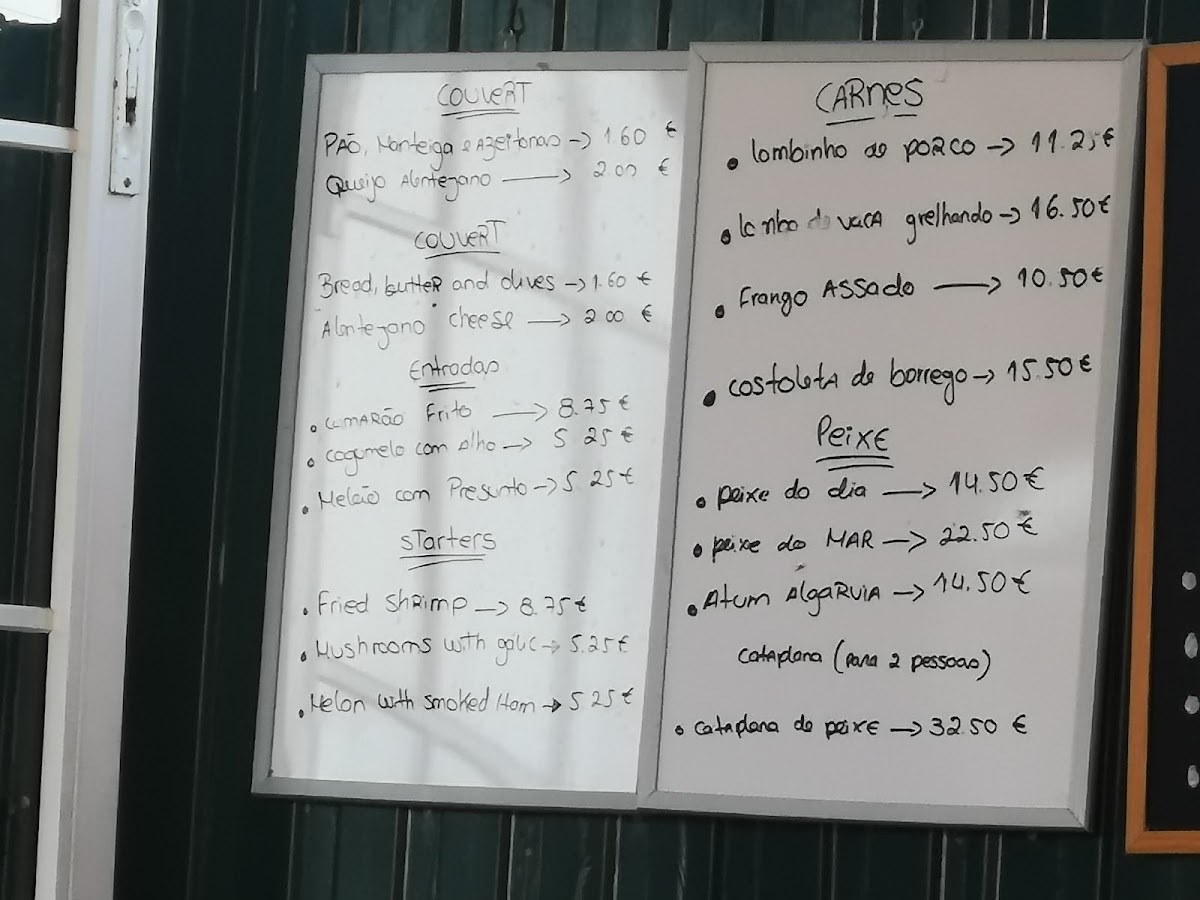 COUVERT
PÃO, Manteiga e Azeitonas -> 1.60 €
Queijo Alentejano -> 2.00 €
COUVERT
Bread, butter and olives -> 1.60 €
Alentejano cheese -> 2.00 €
Entradas
• CAMARÃO Frito -> 8.75 €
• cogumelo com Alho -> 5.25 €
• Melão com Presunto -> 5.25 €
STarters
• Fried Shrimp -> 8.75 €
• Mushrooms with galic -> 5.25 €
• Melon with smoked Ham -> 5.25 €
CARNES
• lombinho de PORCO -> 11.25 €
• lombo de VACA grelhando -> 16.50 €
• Frango ASSado -> 10.50 €
• costoleta de borrego -> 15.50 €
PEIXE
• peixe do dia -> 14.50 €
• peixe do MAR -> 22.50 €
• Atum AlgaRVIA -> 14.50 €
cataplana (para 2 pessoas)
• cataplana de peixe -> 32.50 €